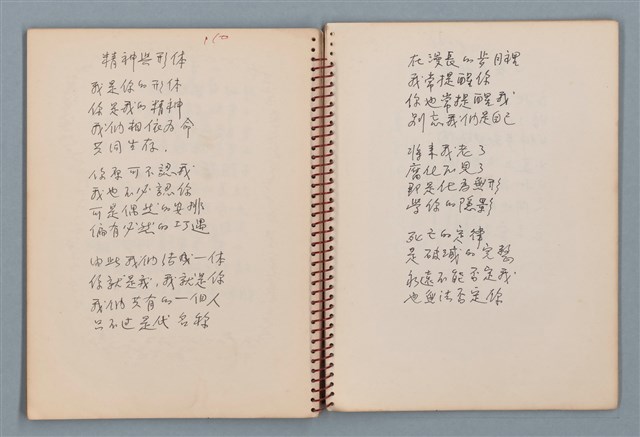 160
精神與形体
我是你的形体
你是我的精神
我们相依為命
共同生存.
你原可不認我
我也不必認你
可是偶然的安排
偏有必然的巧遇
由此我们結成一体
你就是我,我就是你
我们共有的一個人
只不过是代名称
在漫長的岁月裡
我常提醒你
你也常提醒我
別忘我们是自己
將来我老了
腐化不見了
即是化為無形
學你的隱影
死亡的定律
是破滅的完整
永遠不能否定我
也無法否定你